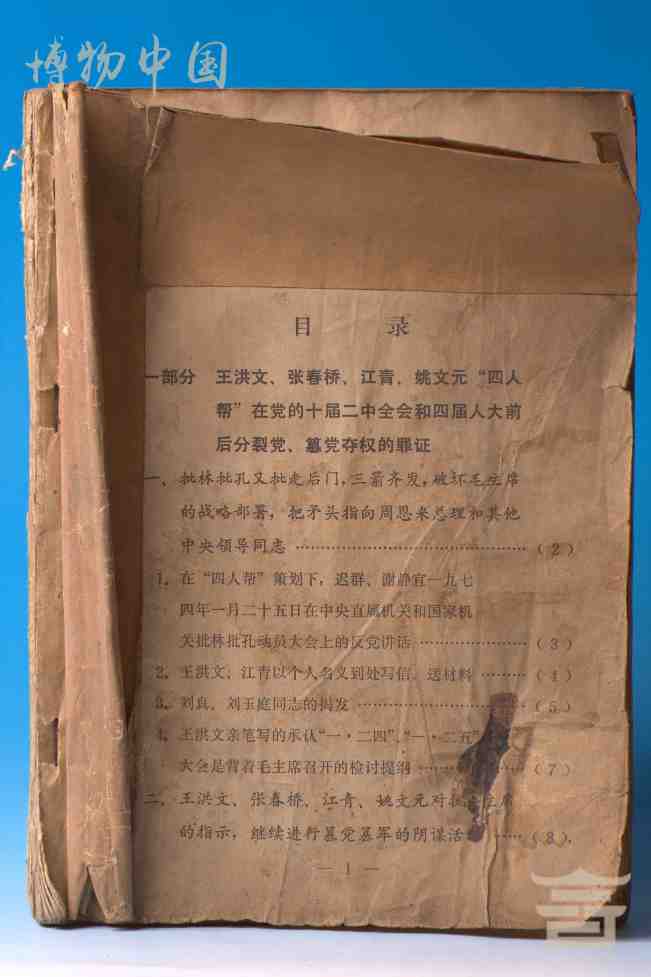 博物中国
目 录
一部分 王洪文、张春桥、江青、姚文元“四人
帮”在党的十届二中全会和四届人大前
后分裂党、篡党夺权的罪证
一、批林批孔又批走后门，三箭齐发，破坏毛主席
的战略部署，把矛头指向周恩来总理和其他
中央领导同志 ……………………………（2）
1、在“四人帮”策划下，迟群、谢静宜一九七
四年一月二十五日在中央直属机关和国家机
关批林批孔动员大会上的反党讲话 ……………（3）
2、王洪文、江青以个人名义到处写信、送材料 ………（4）
3、刘真、刘玉庭同志的揭发 ……………………（5）
4、王洪文亲笔写的承认“一·二四”、“一·二五”
大会是背着毛主席召开的检讨提纲 ……………（7）
二、王洪文、张春桥、江青、姚文元对抗毛主席
的指示，继续进行篡党篡军的阴谋活 ……（8）
— 1 —